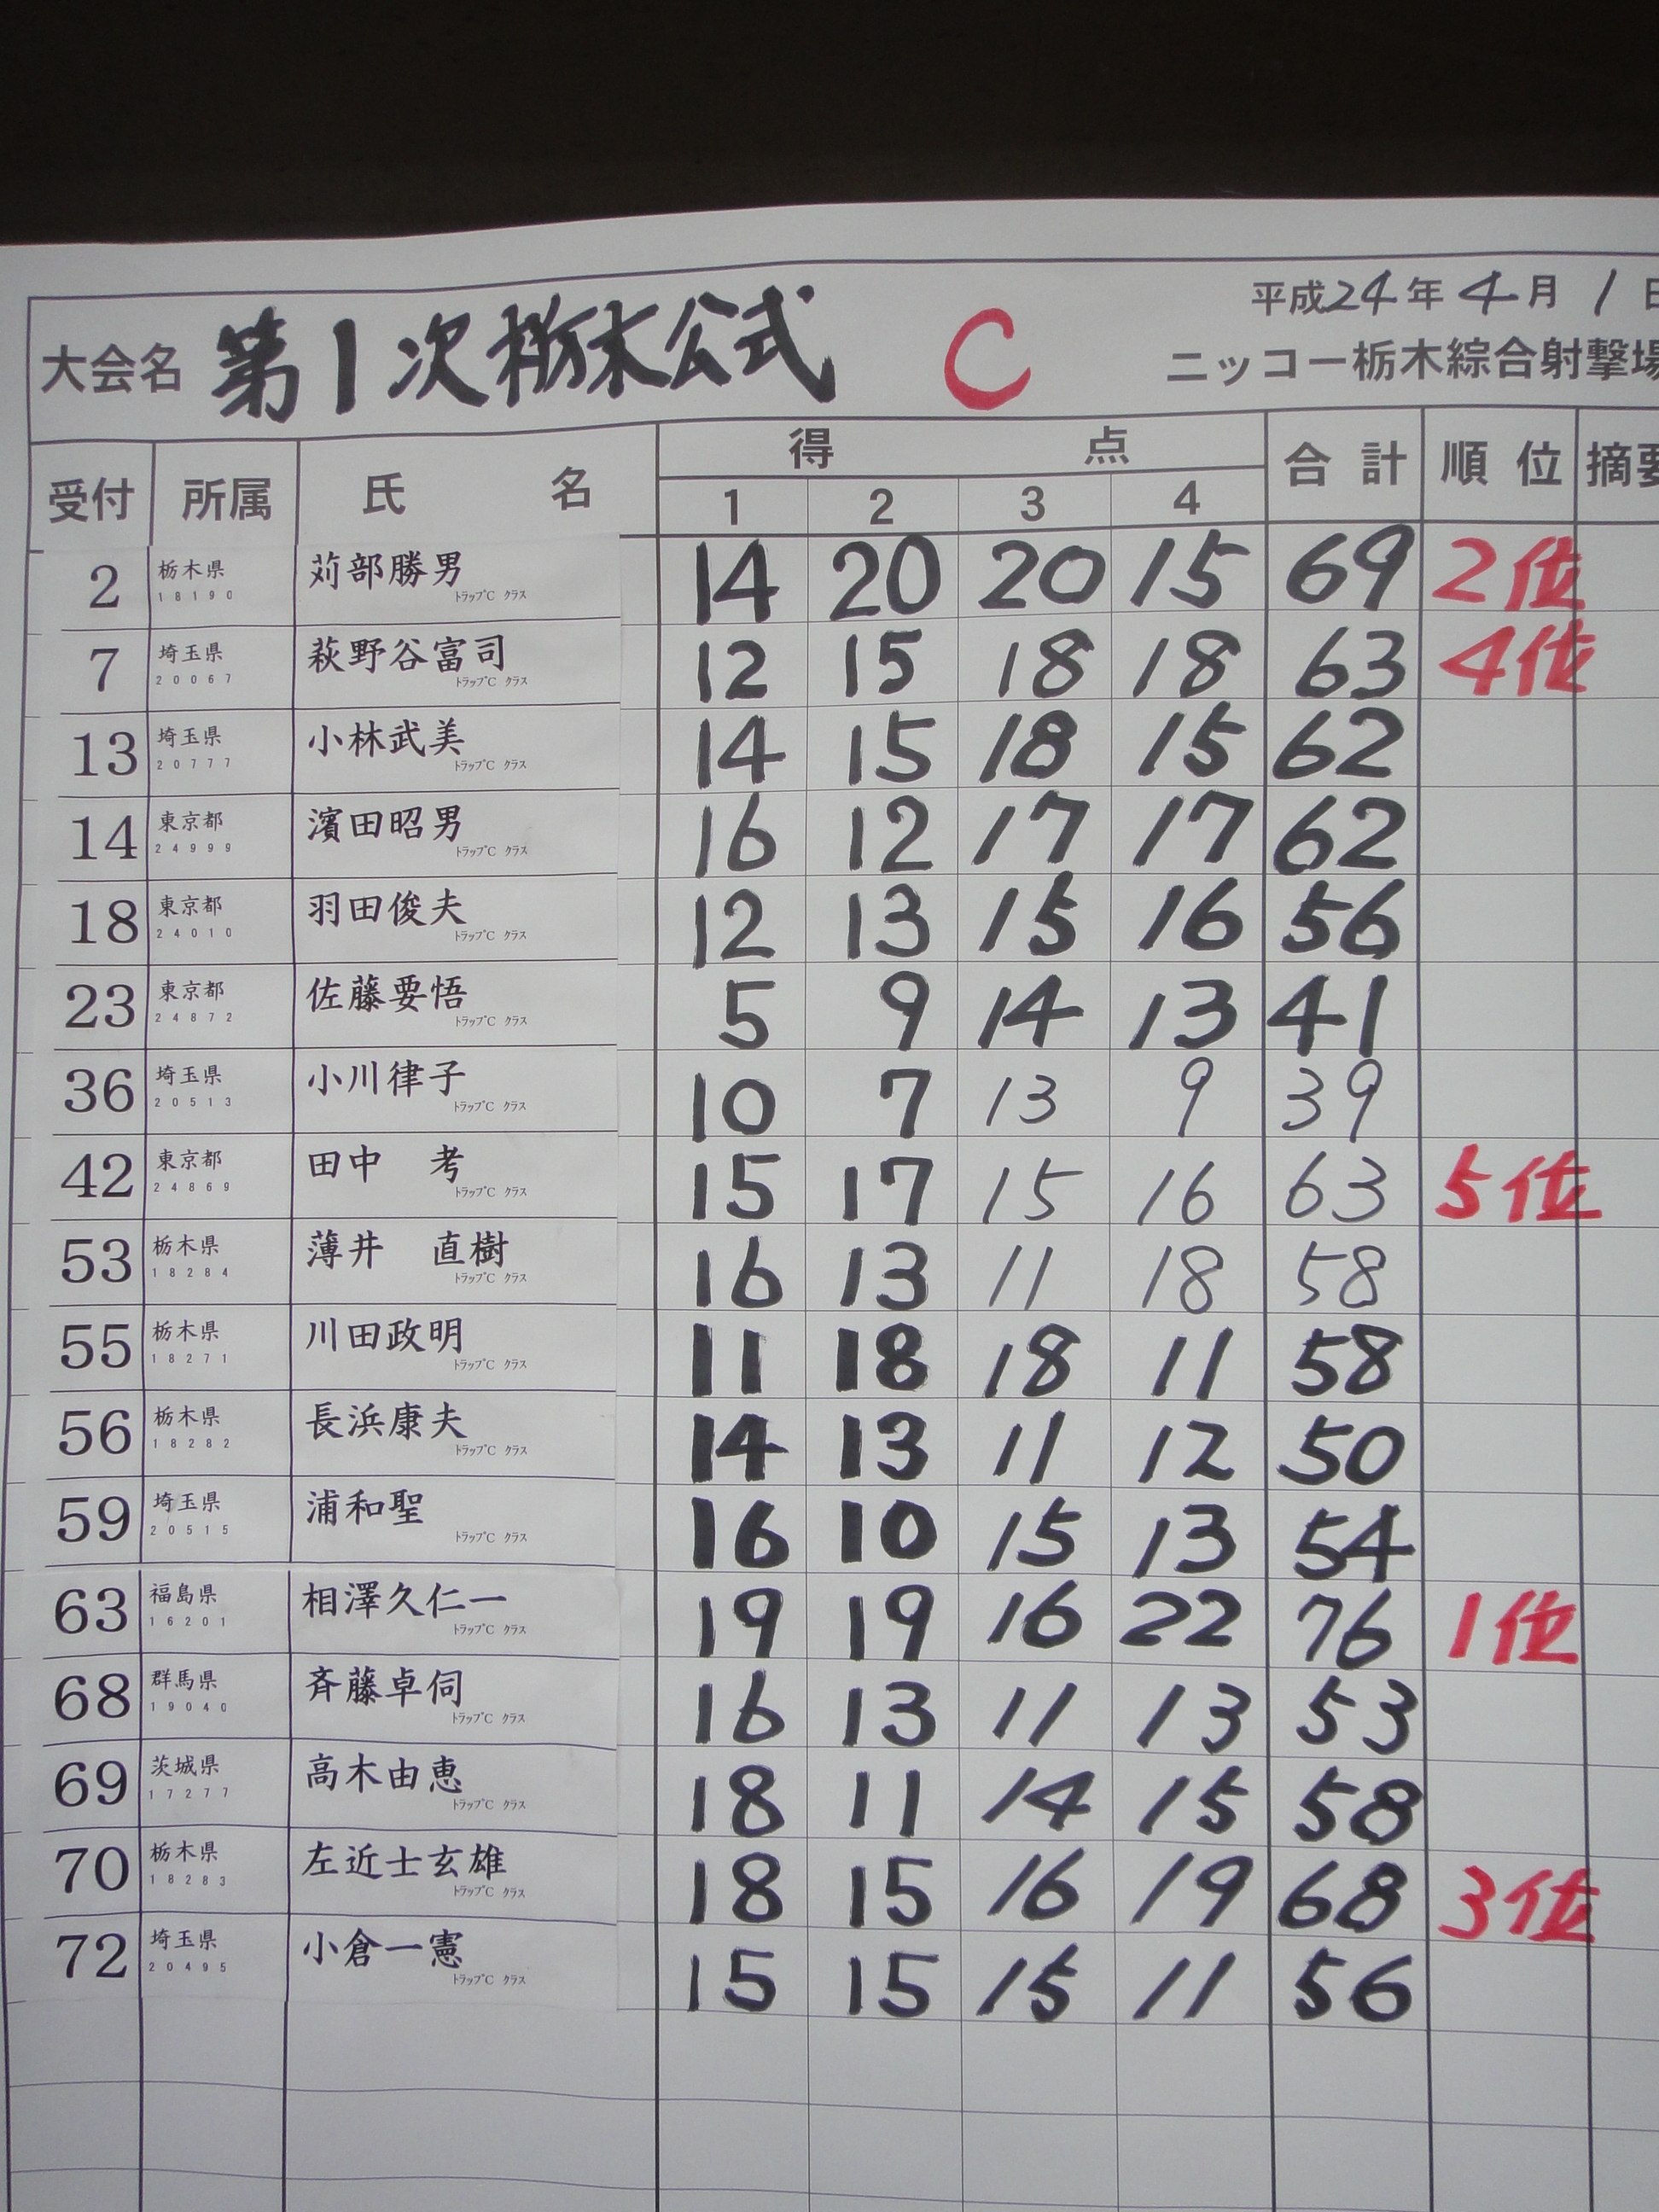 平成24年4月1日
大会名 第1次栃木公式 C
ニッコー栃木綜合射撃場
受付 所属 氏名 得点 合計 順位 摘要
1 2 3 4
2 栃木県 18190 苅部勝男 トラップC クラス 14 20 20 15 69 2位
7 埼玉県 20067 萩野谷富司 トラップC クラス 12 15 18 18 63 4位
13 埼玉県 20777 小林武美 トラップC クラス 14 15 18 15 62
14 東京都 24999 濱田昭男 トラップC クラス 16 12 17 17 62
18 東京都 24010 羽田俊夫 トラップC クラス 12 13 15 16 56
23 東京都 24872 佐藤要悟 トラップC クラス 5 9 14 13 41
36 埼玉県 20513 小川律子 トラップC クラス 10 7 13 9 39
42 東京都 24869 田中 考 トラップC クラス 15 17 15 16 63 5位
53 栃木県 18284 薄井 直樹 トラップC クラス 16 13 11 18 58
55 栃木県 18271 川田政明 トラップC クラス 11 18 18 11 58
56 栃木県 18282 長浜康夫 トラップC クラス 14 13 11 12 50
59 埼玉県 20515 浦和聖 トラップC クラス 16 10 15 13 54
63 福島県 16201 相澤久仁一 トラップC クラス 19 19 16 22 76 1位
68 群馬県 19040 斉藤卓伺 トラップC クラス 16 13 11 13 53
69 茨城県 17277 高木由恵 トラップC クラス 18 11 14 15 58
70 栃木県 18283 左近士玄雄 トラップC クラス 18 15 16 19 68 3位
72 埼玉県 20495 小倉一憲 トラップC クラス 15 15 15 11 56